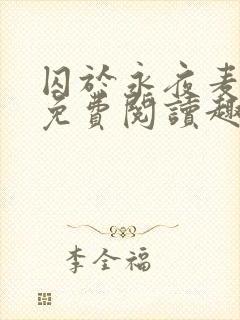 囚於永夜麦
免費閱讀趣
李全福